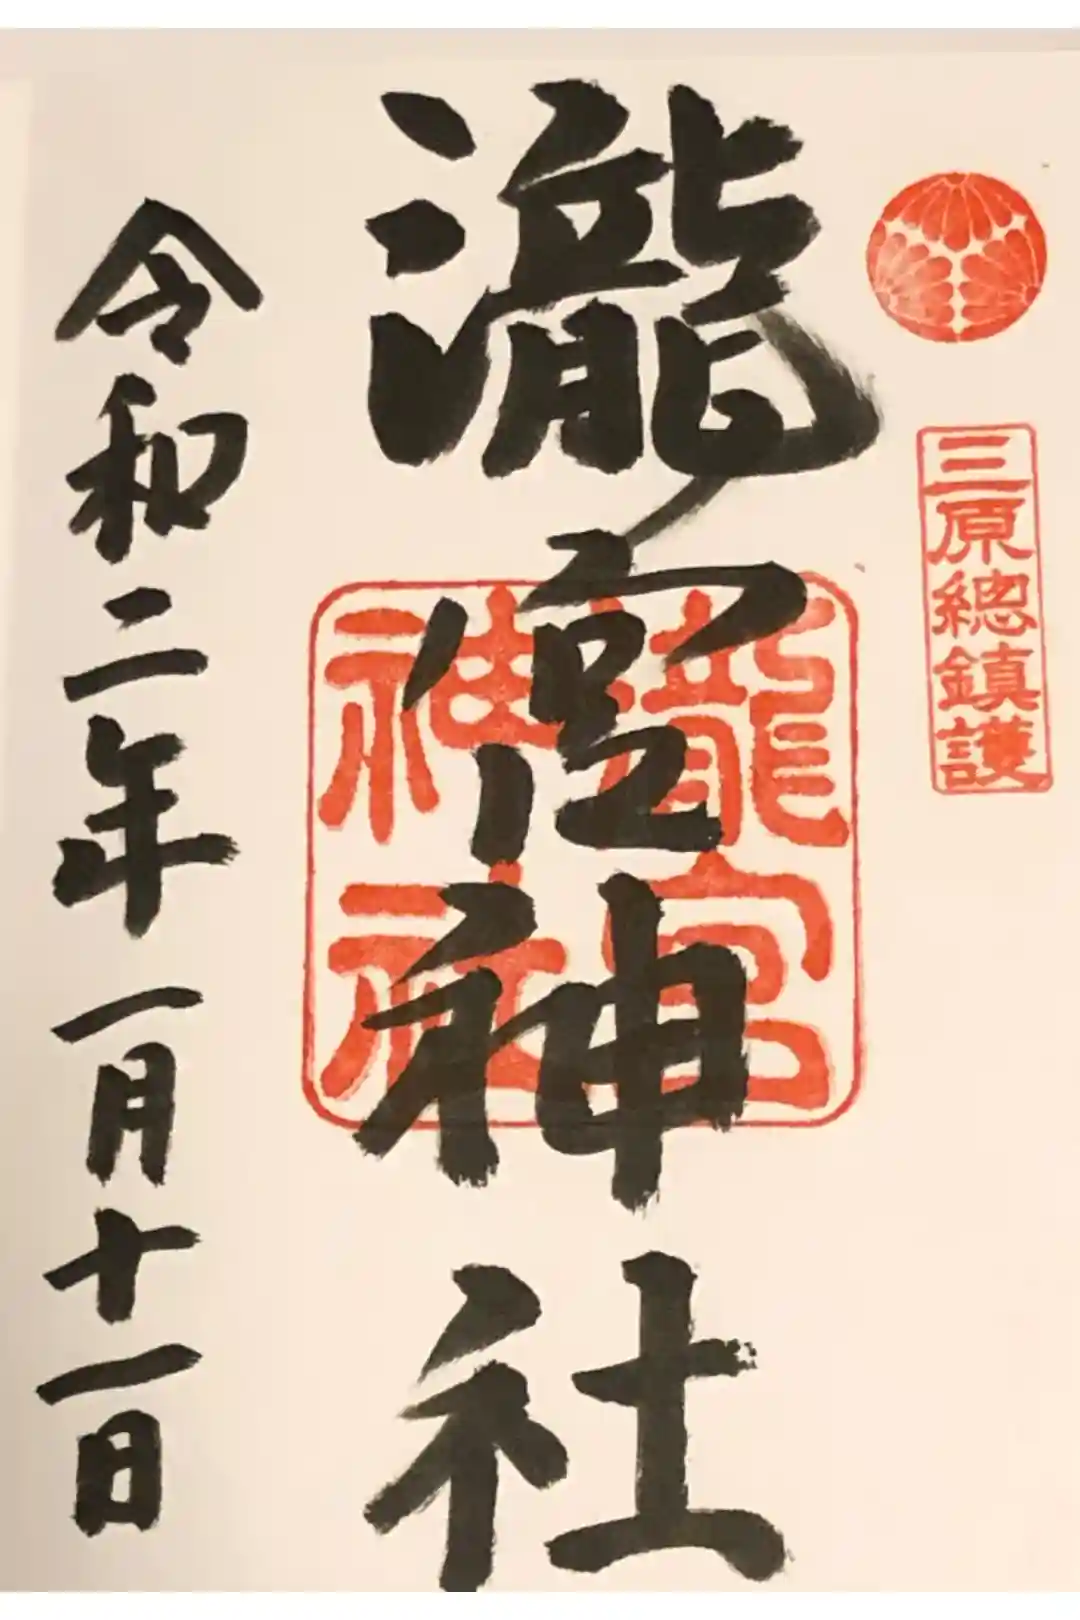 三原總鎮護
瀧宮神社
瀧宮神社
令和二年一月十一日